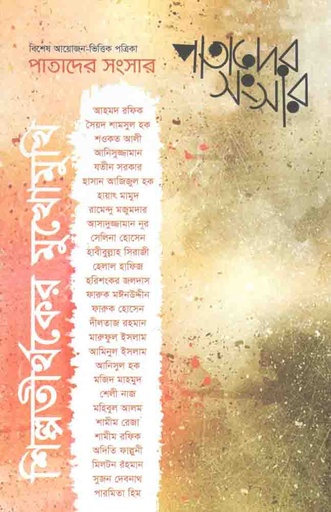 বিশেষ আয়োজন-ভিত্তিক পত্রিকা
পাতাদের সংসার
পাতাদের
সংসার
শিল্পতীর্থকের মুখোমুখি
আহমদ রফিক
সৈয়দ শামসুল হক
শওকত আলী
আনিসুজ্জামান
যতীন সরকার
হাসান আজিজুল হক
হায়াৎ মামুদ
রামেন্দু মজুমদার
আসাদুজ্জামান নূর
সেলিনা হোসেন
হাবীবুল্লাহ সিরাজী
হেলাল হাফিজ
হরিশংকর জলদাস
ফারুক মঈনউদ্দীন
ফারুক হোসেন
দীলতাজ রহমান
মারুফুল ইসলাম
আমিনুল ইসলাম
আনিসুল হক
মজিদ মাহমুদ
শেলী নাজ
মহিবুল আলম
শামীম রেজা
শামীম রফিক
অদিতি ফাল্গুনী
মিলটন রহমান
সুজন দেবনাথ
পারমিতা হিম